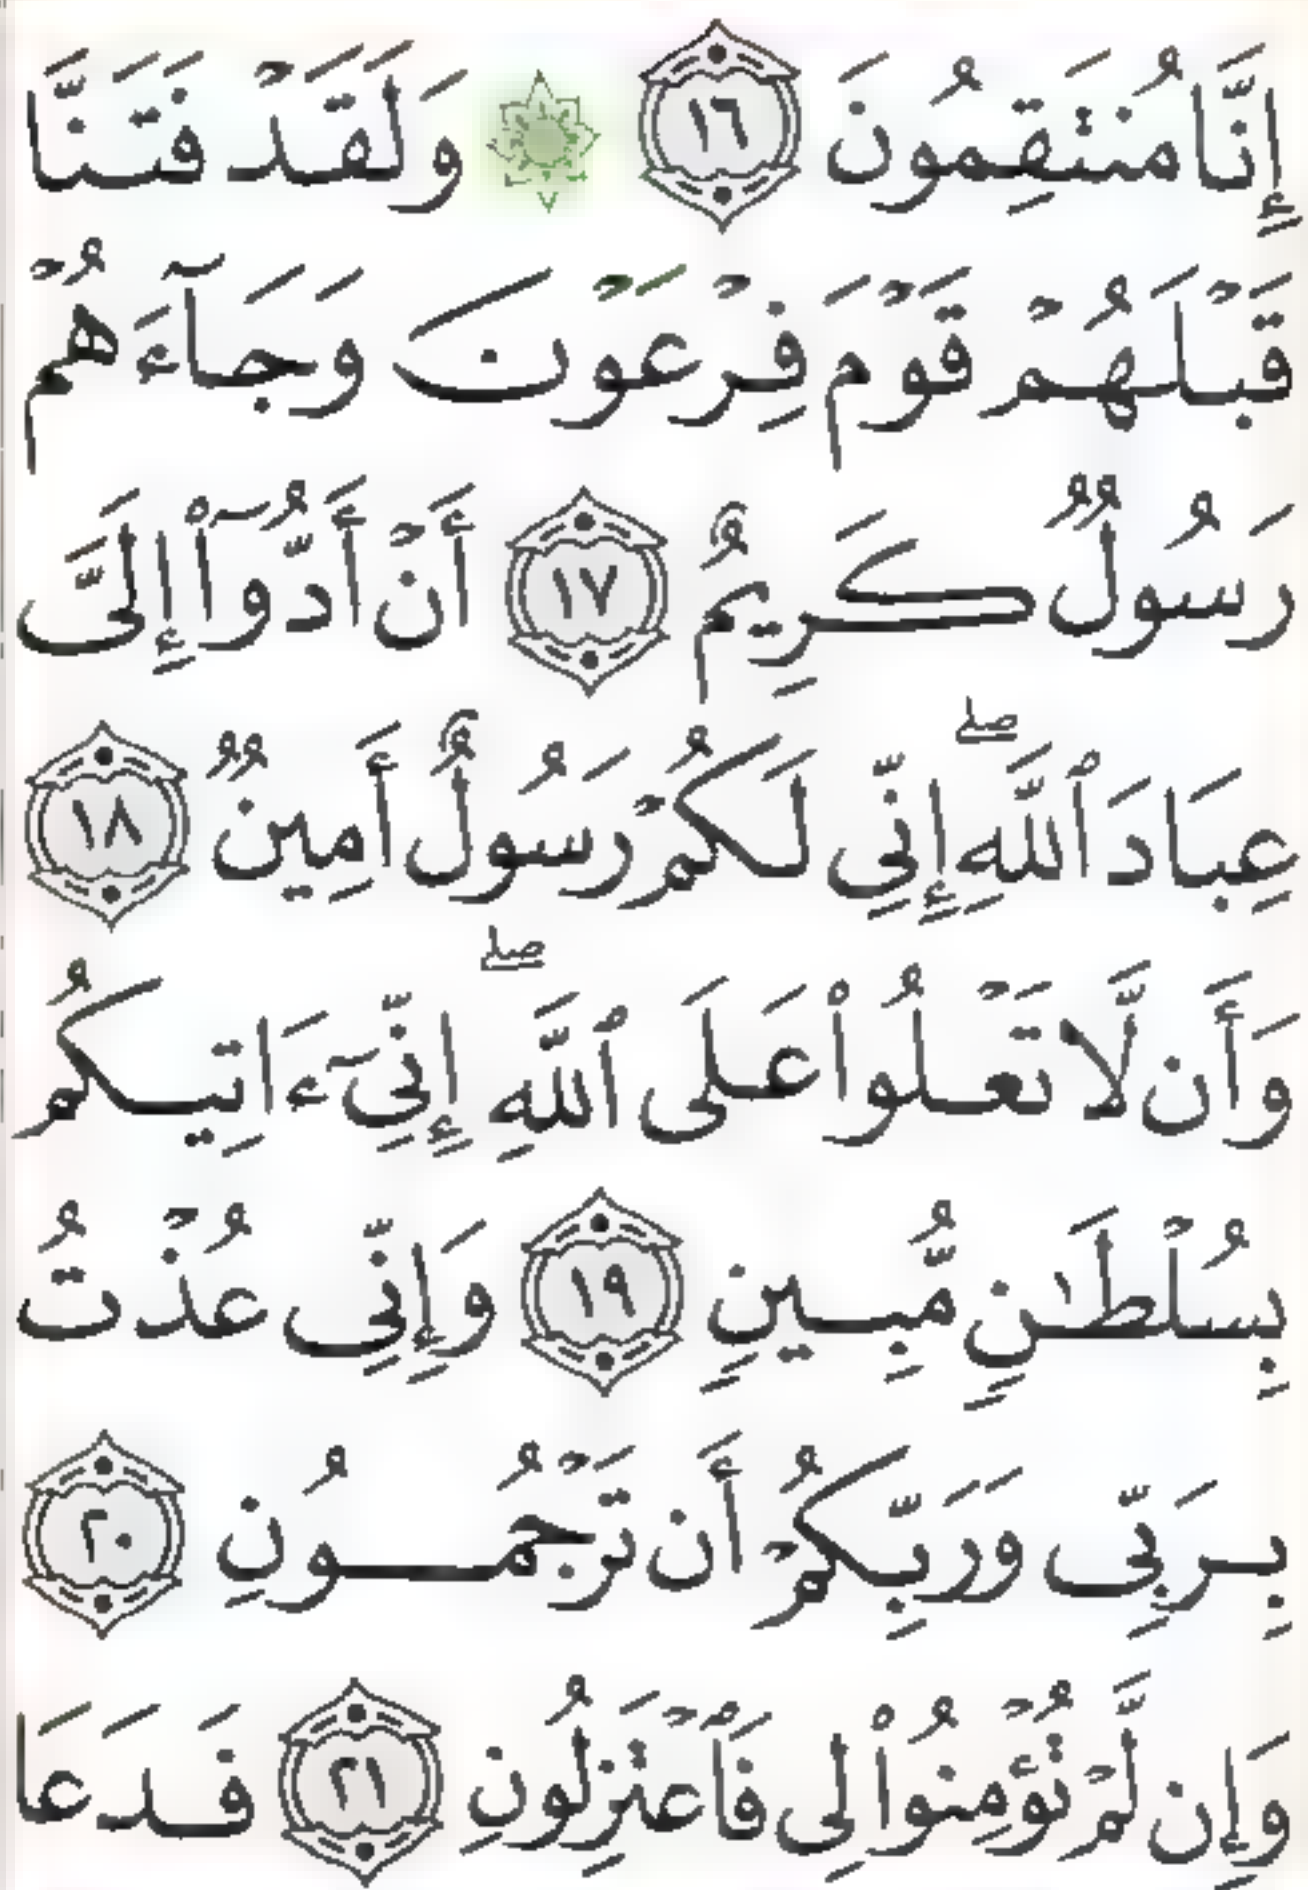 إِنَّا مُنتَقِمُونَ ١٦ ۞ وَلَقَدْ فَتَنَّا
قَبْلَهُمْ قَوْمَ فِرْعَوْنَ وَجَآءَهُمْ
رَسُولٌ كَرِيمٌ ١٧ أَنْ أَدُّوٓا۟ إِلَىَّ
عِبَادَ ٱللَّهِ ۖ إِنِّى لَكُمْ رَسُولٌ أَمِينٌ ١٨
وَأَن لَّا تَعْلُوا۟ عَلَى ٱللَّهِ ۖ إِنِّىٓ ءَاتِيكُم
بِسُلْطَـٰنٍ مُّبِينٍ ١٩ وَإِنِّى عُذْتُ
بِرَبِّى وَرَبِّكُمْ أَن تَرْجُمُونِ ٢٠
وَإِن لَّمْ تُؤْمِنُوا۟ لِى فَٱعْتَزِلُونِ ٢١ فَدَعَا